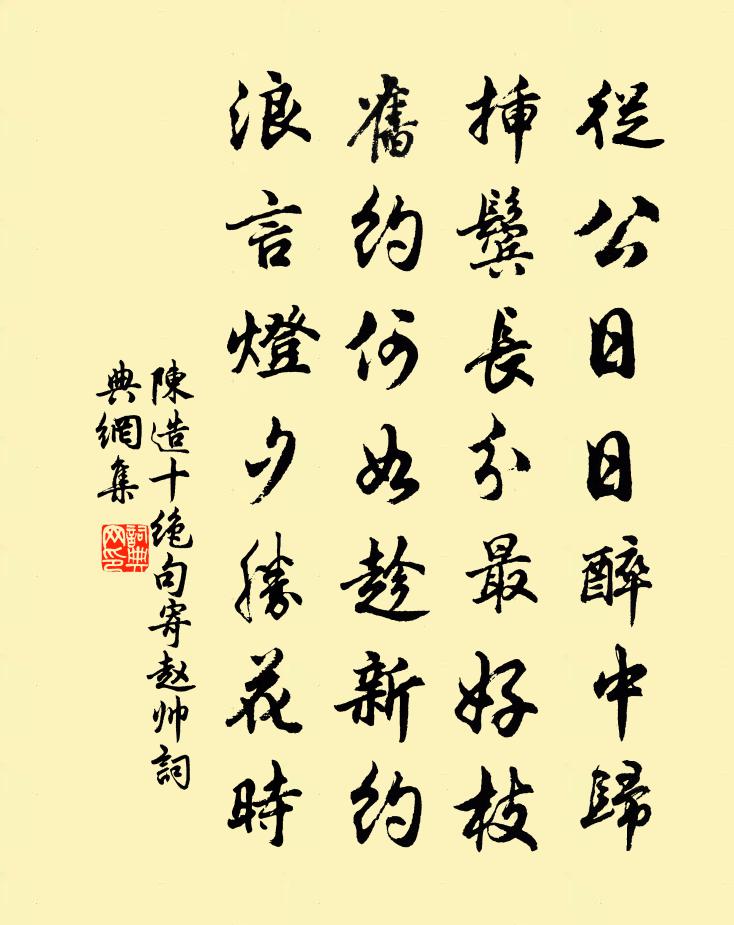 從公日日醉中歸
挿鬢長分最好枝
舊約何如趁新約
浪言燈夕勝花時
陳造十绝句寄赵帅詞
典網集
詞典
网印